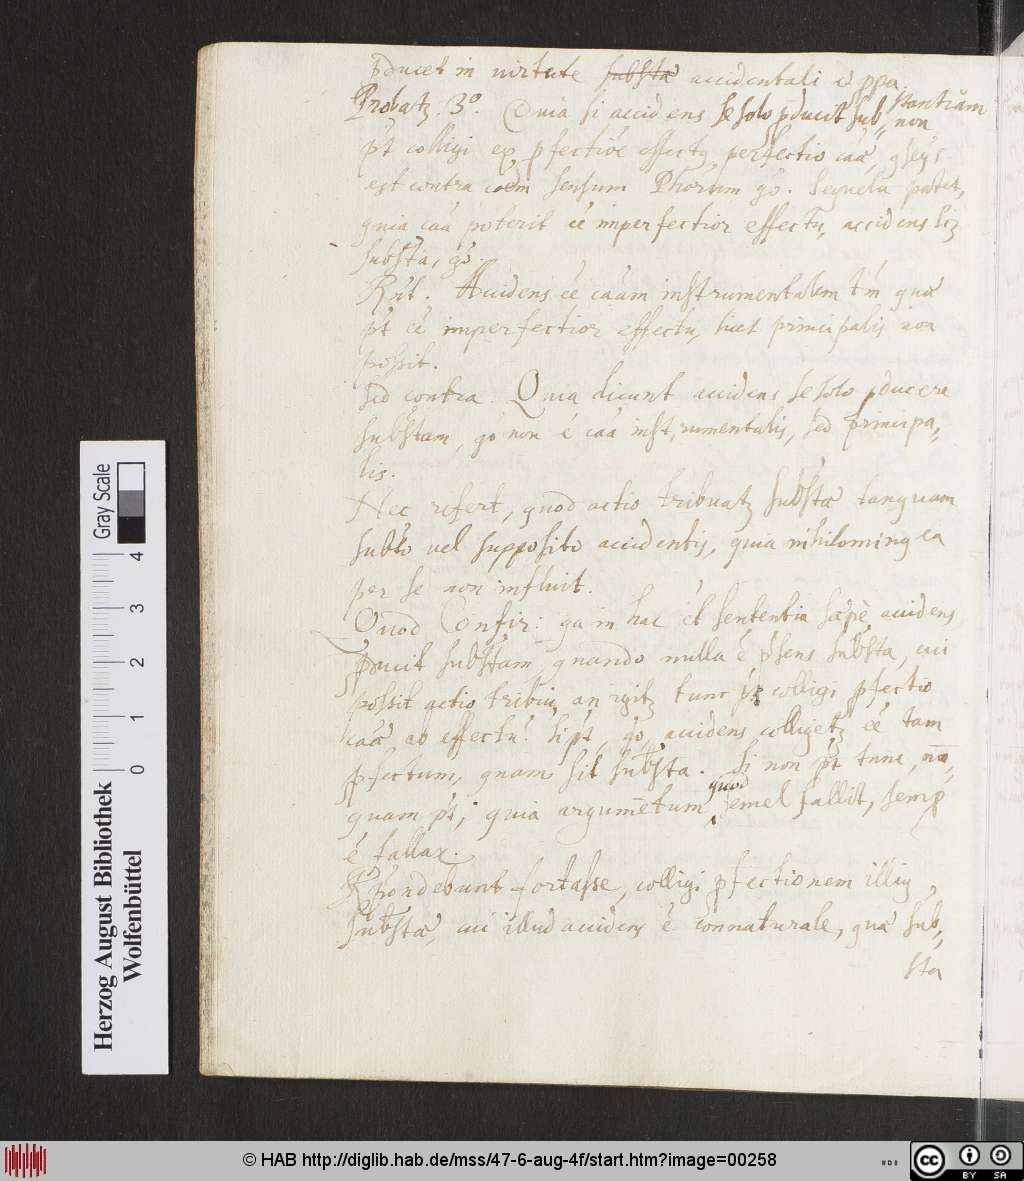 pducet in virtute substa accidentali ē ppa
Probatz. 3º. Quia si accidens se solo pducit sub„ stantiam non
pt colligi ex pfectiōe effectq perfectio cāa,
est contra coēm sensum Phōrum gō. Sequela patet,
quia cāa poterit ēe imperfectior effectu, accidens
substā, gō.
Rñt. Accidens ēe cāam instrumentalem tm quā
pt ēe imperfectior effectu, licet principalis non
possit.
Sed contra. Quia dicunt accidens se solo pducere
substam, gō non ē cāa instrumentalis, sed principa„
lis.
Nec refert, quod actio tribuatz substā tanquam
subto vel supposito accidentis, quia nihilominq ea
per se non influit.
Quod Confir: qa in hac ēt sententia sæpè accidens
pducit substam, quando nulla ē psens substa, cui
possit actio tribui, an igitz tunc pt colligi pfectio
cāa ab effectu? si pt, gō, accidens colligetz ēe tam
pfectum, quam sit substa. Si non pt tunc, nō„
quam pt, quia argumētum quod semel fallit, semp
ē fallax.
Rspondebunt fortasse, colligi pfectionem illiq
substā, cui illud accidens ē connaturale, quā sub„
sta
Herzog August Bibliothek
Wolfenbüttel
Gray Scale
0 1 2 3 4
© HAB http://diglib.hab.de/mss/47-6-aug-4f/start.htm?image=00258
cc BY SA